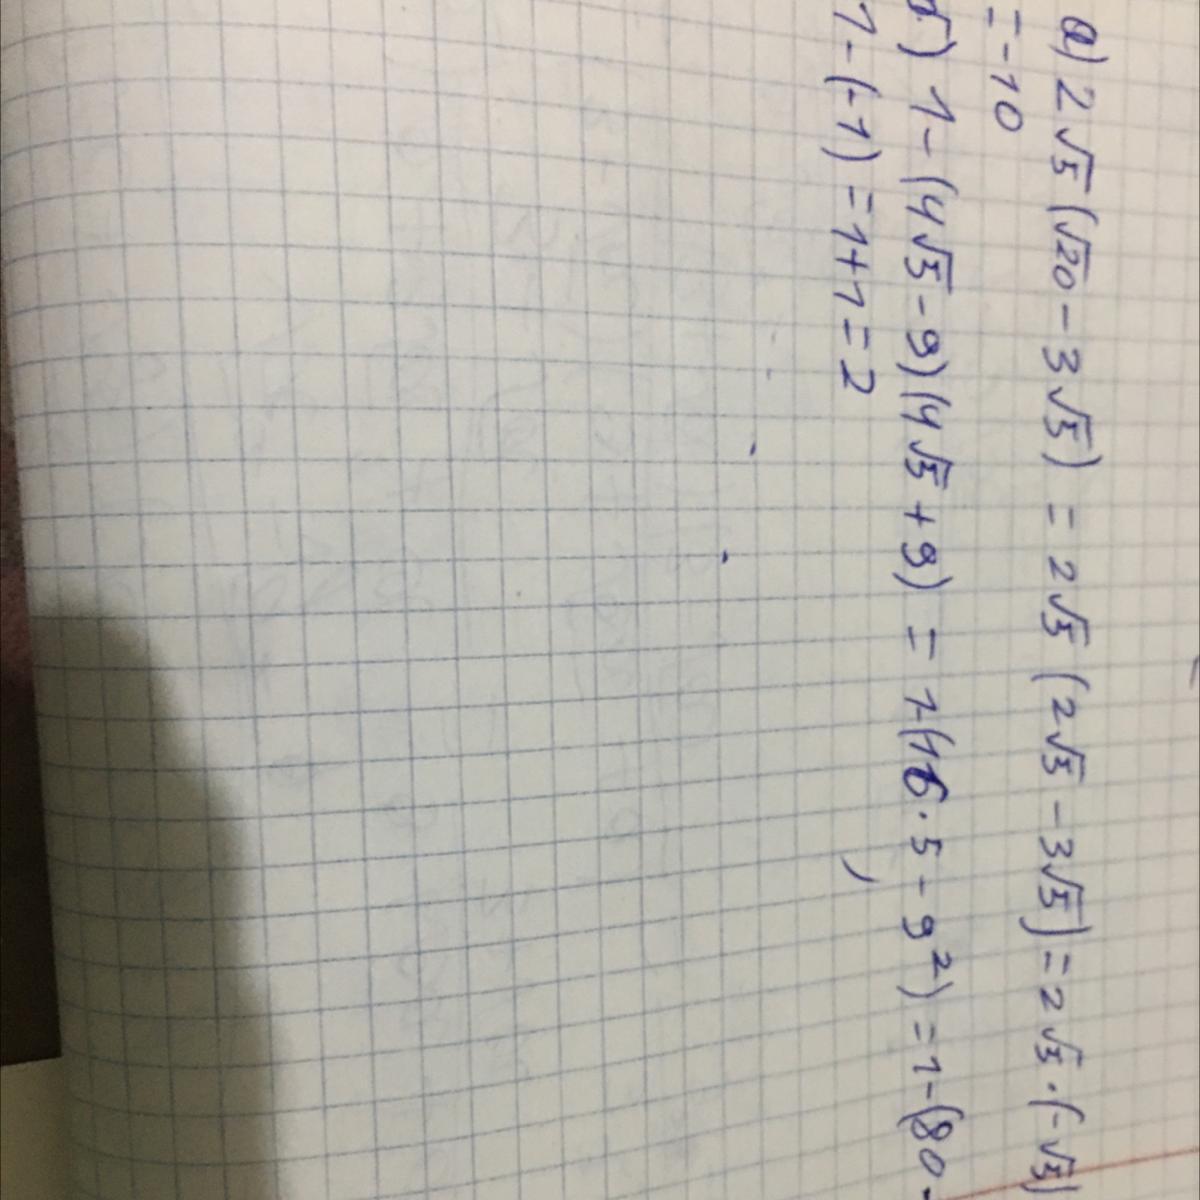 а) 2√5 (√20 - 3√5) = 2√5 (2√5 - 3√5) = 2√5 · (-√5)
= -10
б) 1 - (4√5 - 9)(4√5 + 9) = 1-(16 · 5 - 9²) = 1 - (80 -
1 - (-1) = 1 + 1 = 2